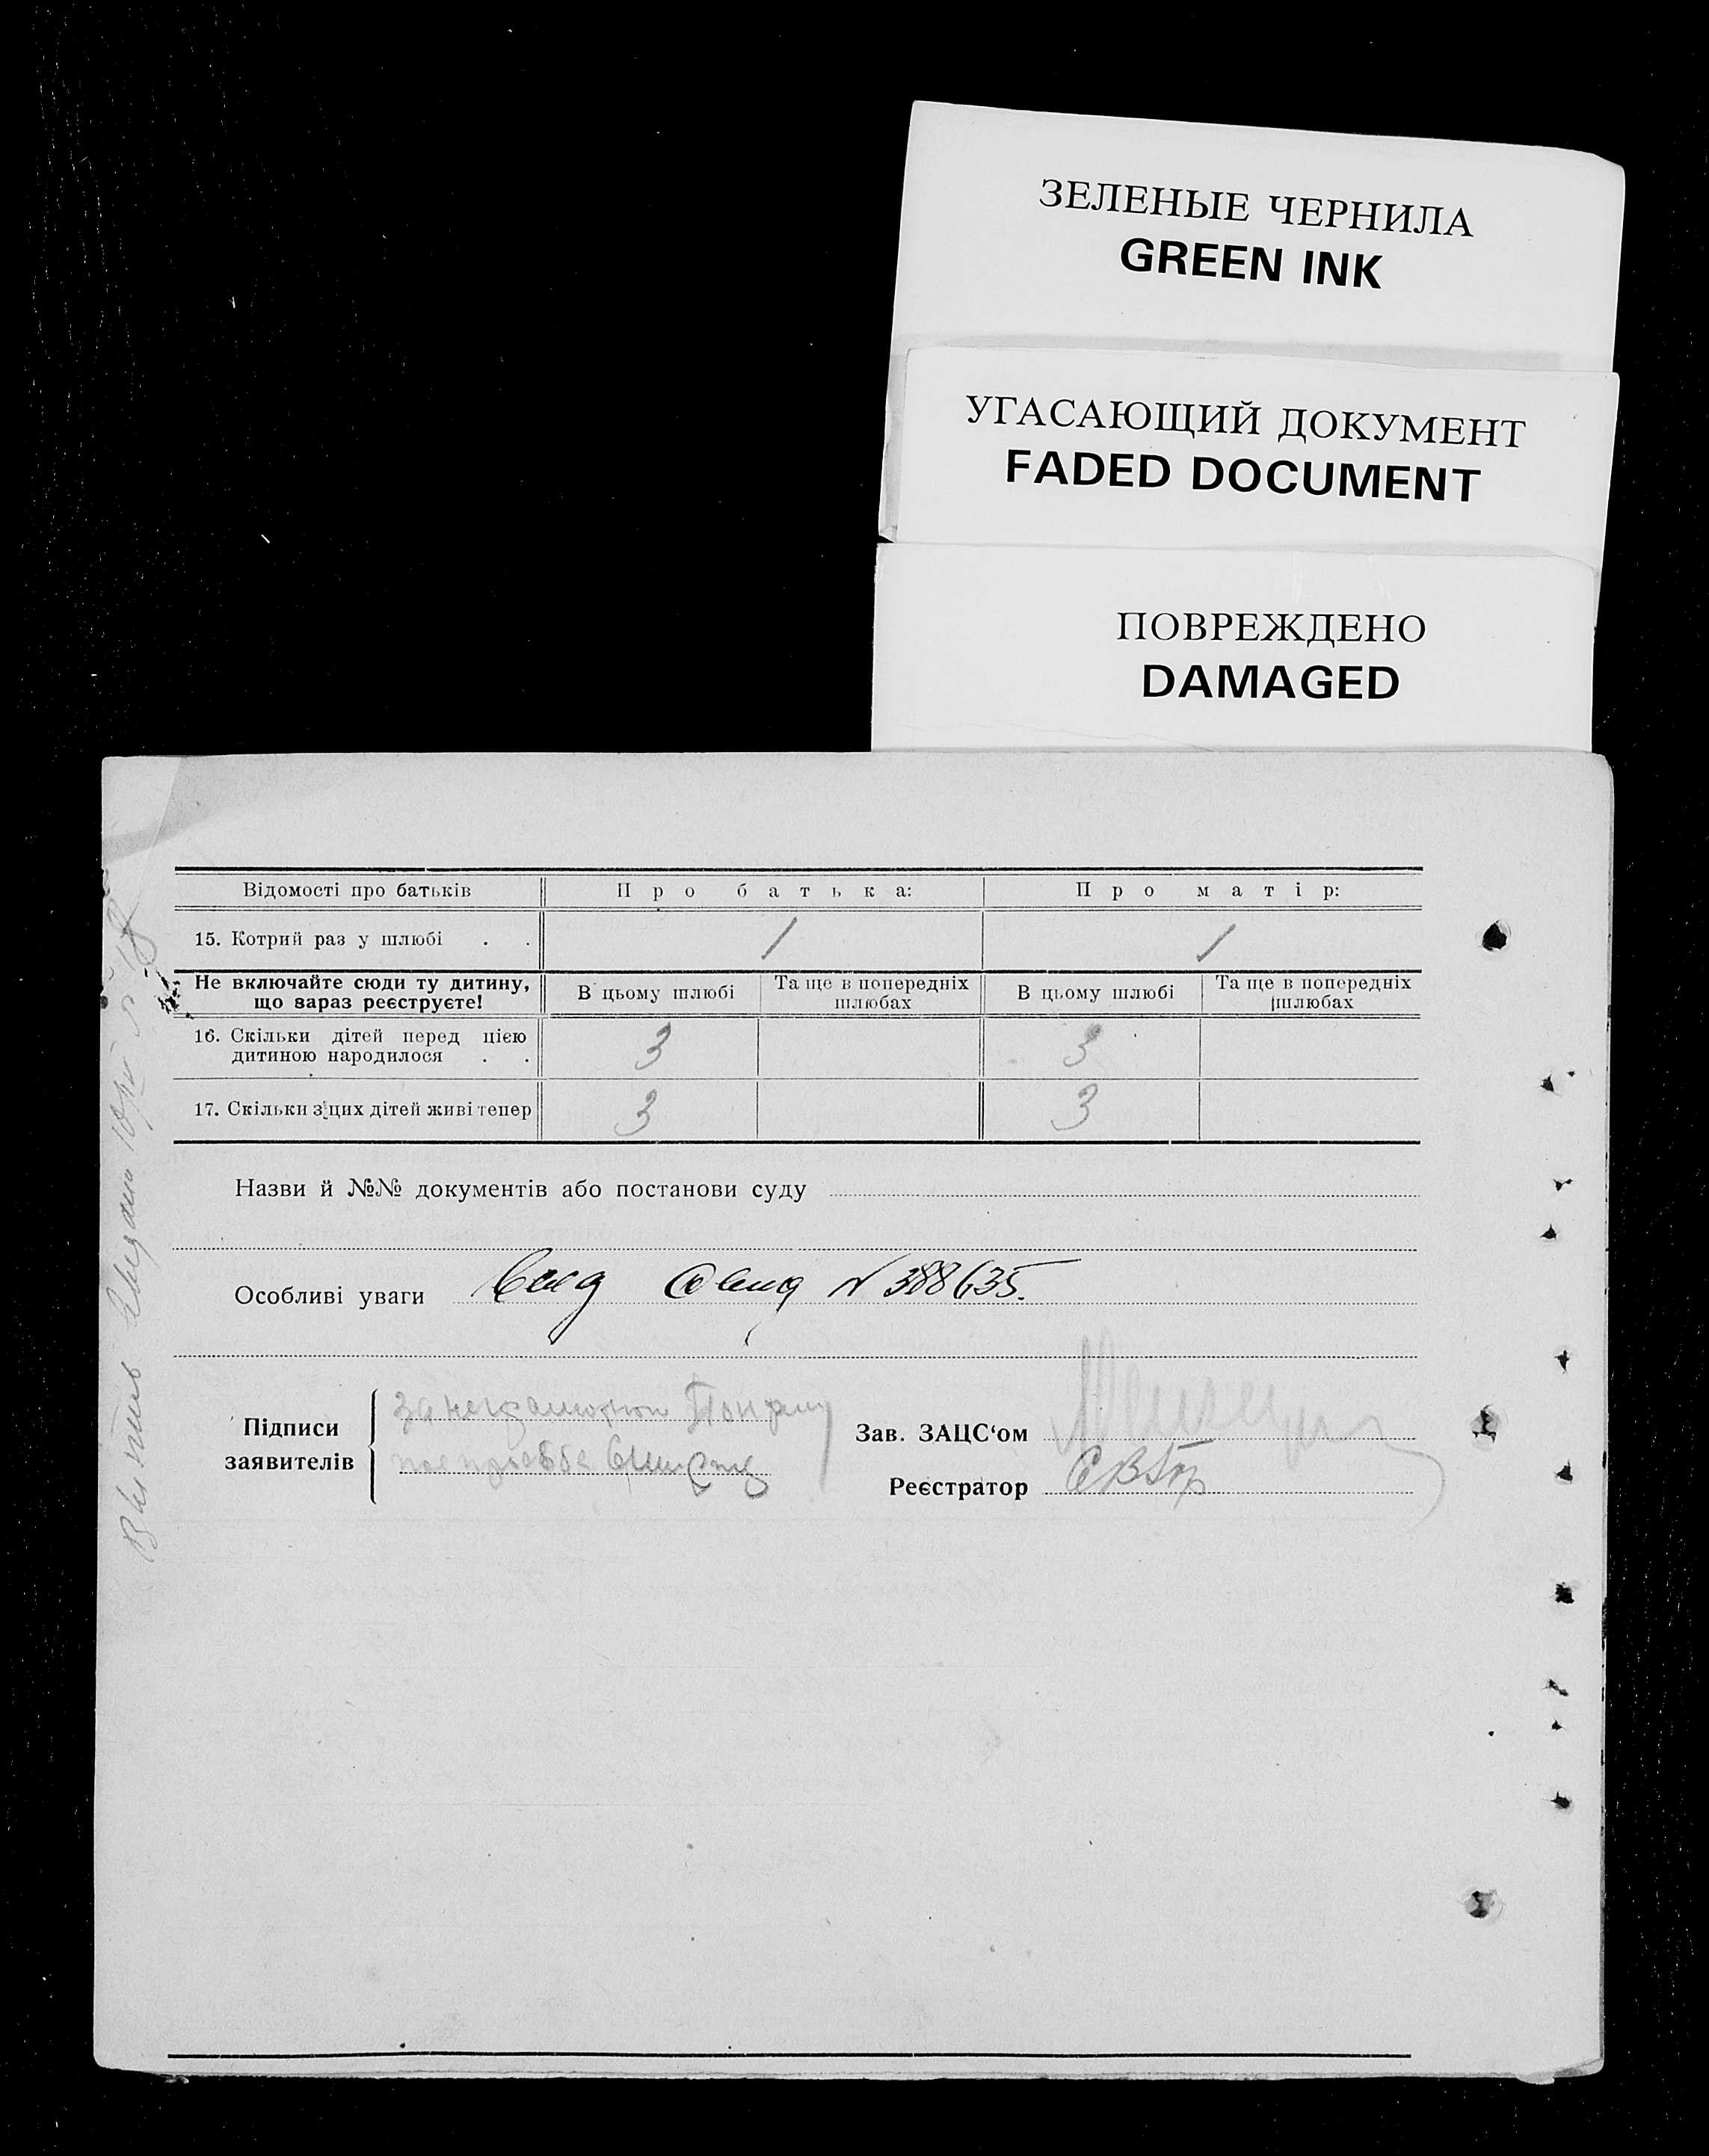 ЗЕЛЕНЫЕ ЧЕРНИЛА
GREEN INK
УГАСАЮЩИЙ ДОКУМЕНТ
FADED DOCUMENT
ПОВРЕЖДЕНО
DAMAGED
Відомості про батьків Про батька: Про матір:
15. Котрий раз у шлюбі . . 1 1
Не включайте сюди ту дитину, що вараз реєструєте! В цьому шлюбі Та ще в попередніх шлюбах В цьому шлюбі Та ще в попередніх шлюбах
16. Скільки дітей перед цією
дитиною народилося . . 3 3
17. Скільки з цих дітей живі тепер 3 3
Назви й №№ документів або постанови суду
Особливі уваги N 388635.
Підписи
заявителів
Зав. ЗАЦС‘ом
Реєстратор